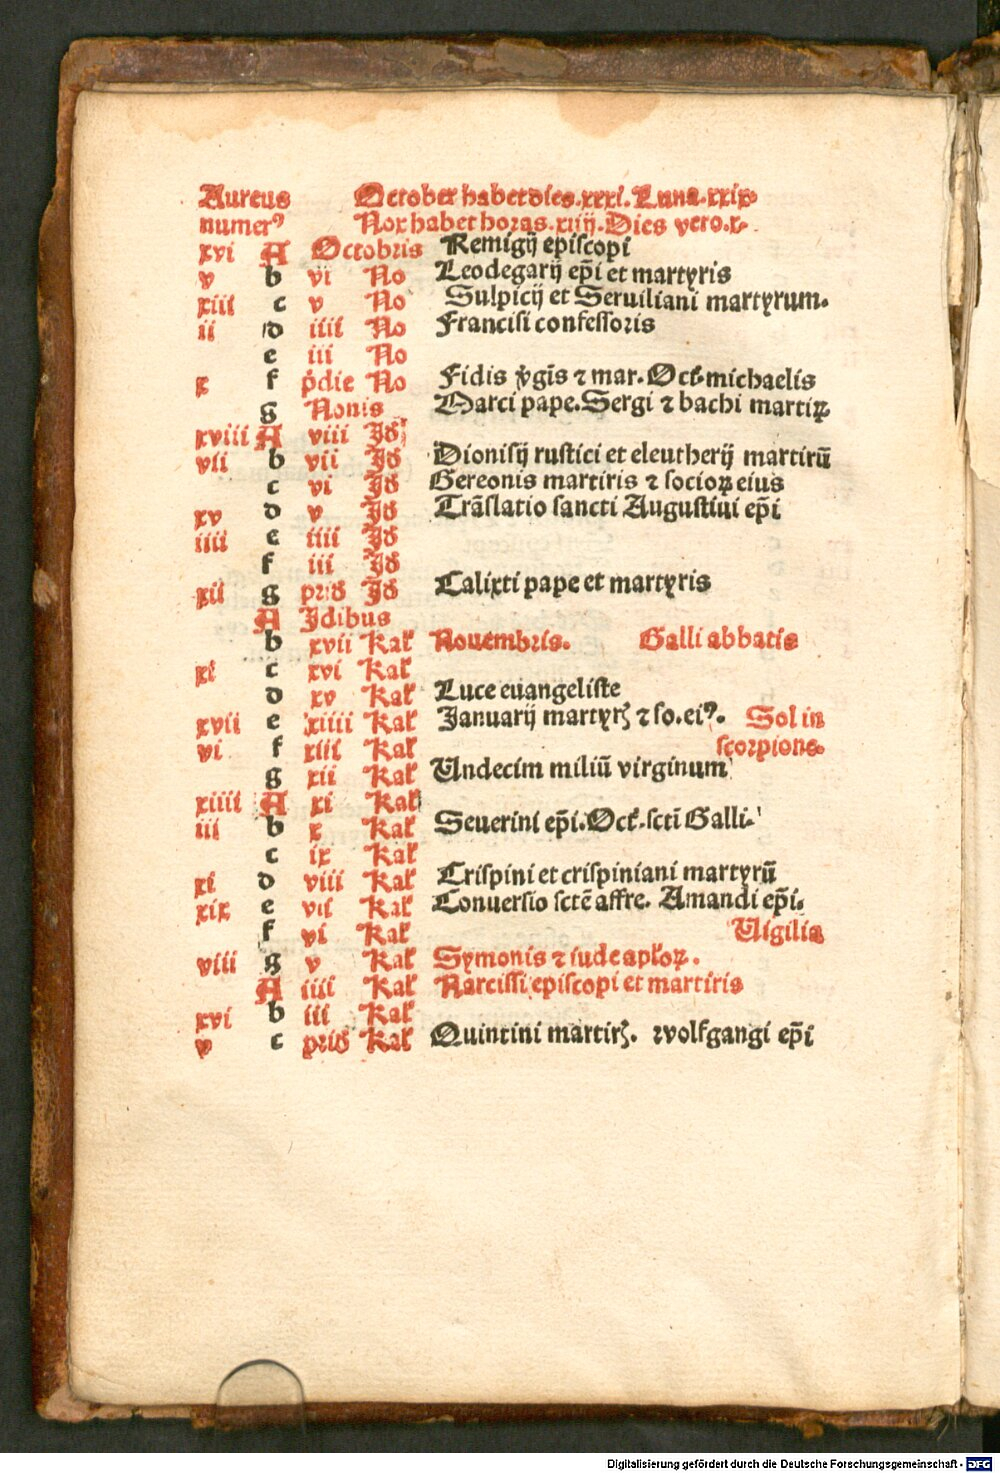 Aureus October habet dies.xxxi.Luna.xxix.
numerꝰ Nox habet horas.xiiij.Dies vero.x.
xvi A Octobris Remigij episcopi
v b vi No Leodegarij ep̄i et martyris
xiii c v No Sulpicij et Seruiliani martyrum.
ii d iiii No Francisci confessoris
e iii No
x f p̄die No Fidis v̄gīs ⁊ mar. Oct. michaelis
g Nonis Marci pape. Sergi ⁊ bachi martiꝝ
xviii A viii Id
vii b vii Id Dionisij rustici et eleutherij martirū
c vi Id Gereonis martiris ⁊ socioꝝ eius
xv d v Id Trāslatio sancti Augustini ep̄i
iiii e iiii Id
f iii Id
xii g prid Id Calixti pape et martyris
A Idibus
b xvii Kal Nouembris. Galli abbatis
xi c xvi Kal
d xv Kal Luce euangeliste
xvii e xiiii Kal Januarij martyrꝭ ⁊ so.eiꝰ. Sol in
vi f xiii Kal scorpione
g xii Kal Undecim miliū virginum
xiiii A xi Kal
iii b x Kal Seuerini ep̄i. Oct. sctī Galli.
c ix Kal
xi d viii Kal Crispini et crispiniani martyrū
xix e vii Kal Conuersio sctē affre. Amandi ep̄i.
f vi Kal Vigilia
viii g v Kal Symonis ⁊ iude apl'oꝝ.
A iiii Kal Narcissi episcopi et martiris
xvi b iii Kal
v c prid Kal Quintini martirꝭ. wolfgangi ep̄i
Digitalisierung gefördert durch die Deutsche Forschungsgemeinschaft - DFG